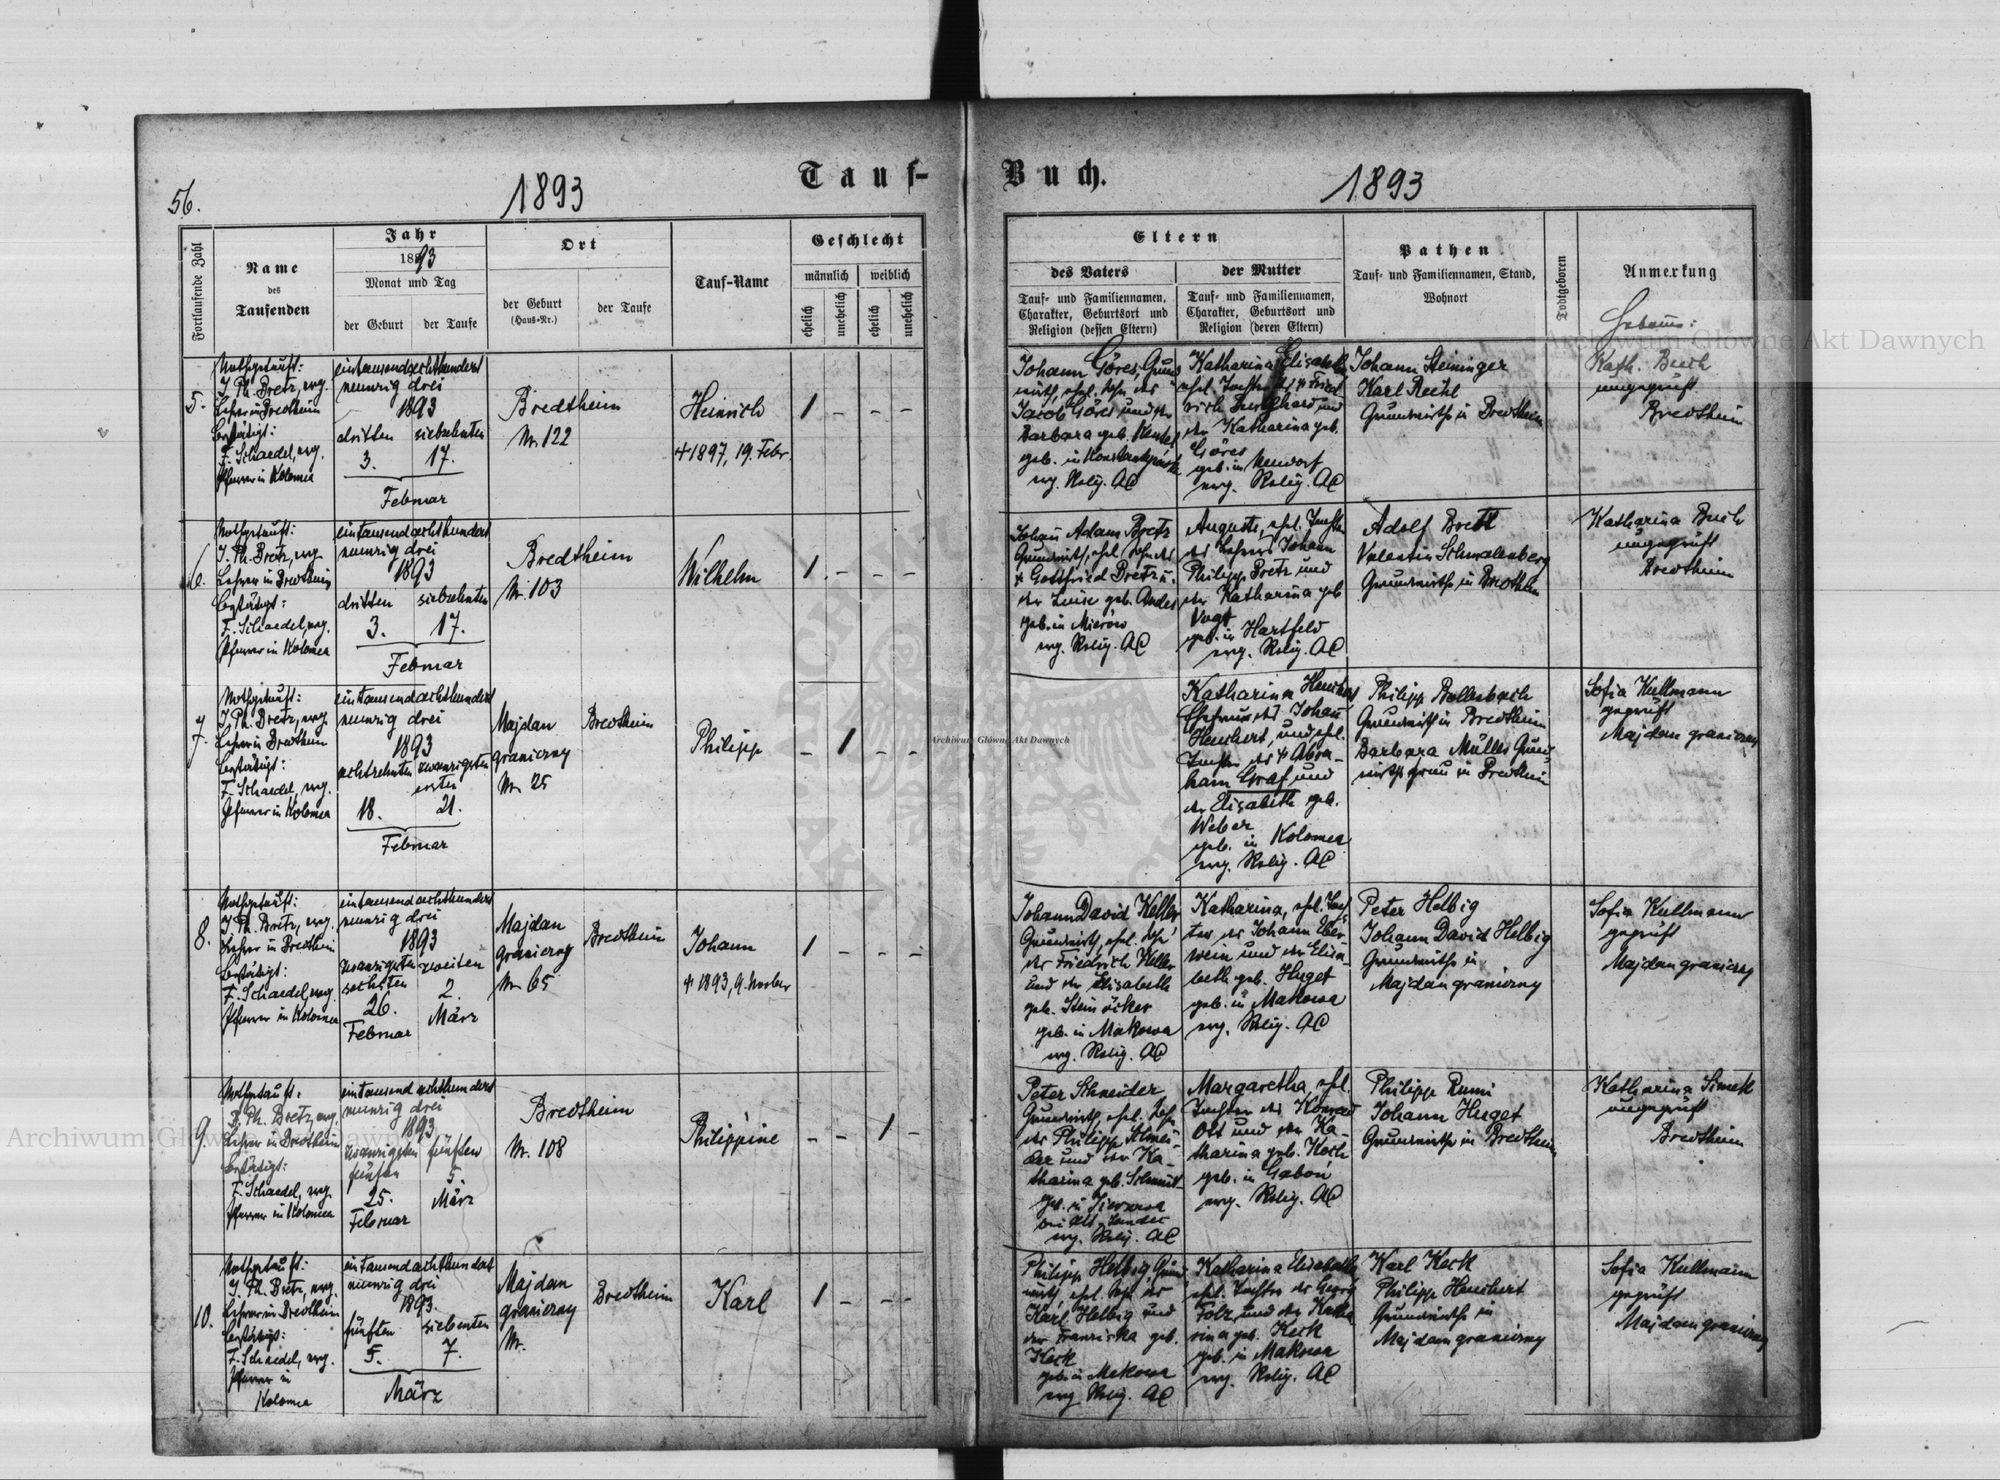 56.
1893
Tauf-
Fortlaufende Zahl
Name
des
Taufenden
Jahr
1893
Monat und Tag
der Geburt
der Taufe
Ort
der Geburt
(Haus-Nr.)
der Taufe
Tauf-Name
Geschlecht
männlich
weiblich
ehelich
unehelich
ehelich
unehelich
5.
Nothgetauft:
J. Ph. Bretz, evg.
Lehrer in Bredtheim
bestätigt:
F. Schaedel, evg.
Pfarrer in Kolomea
eintausendachthundert
neunzig drei
1893
dritten siebzehnten
3. 17.
Februar
Bredtheim
Nr. 122
Heinrich
+ 1897, 19. Febr.
1 - - -
6.
Nothgetauft:
J. Ph. Bretz, evg.
Lehrer in Bredtheim
bestätigt:
F. Schaedel, evg.
Pfarrer in Kolomea
eintausendachthundert
neunzig drei
1893
dritten siebzehnten
3. 17.
Februar
Bredtheim
Nr. 103
Wilhelm
1. - - -
7.
Nothgetauft:
J. Ph. Bretz, evg.
Lehrer in Bredtheim
bestätigt:
F. Schaedel, evg.
Pfarrer in Kolomea
eintausendachthundert
neunzig drei
1893
achtzehnten zwanzigsten
ersten
18. 21.
Februar
Majdan
graniczny
Nr. 25
Bredtheim
Philipp
- 1 - -
8.
Nothgetauft:
J. Ph. Bretz, evg.
Lehrer in Bredtheim
bestätigt:
F. Schaedel, evg.
Pfarrer in Kolomea
eintausendachthundert
neunzig drei
1893
zwanzigsten zweiten
sechsten 2.
26. März
Februar
Majdan
graniczny
Nr. 65
Bredtheim
Johann
+ 1893, 9. Novber
1 - - -
9.
Nothgetauft:
J. Ph. Bretz, evg.
Lehrer in Bredtheim
bestätigt:
F. Schaedel, evg.
Pfarrer in Kolomea
eintausendachthundert
neunzig drei
1893
zwanzigsten fünften
fünften 5.
25. März
Februar
Bredtheim
Nr. 108
Philippine
- - 1 -
10.
Nothgetauft:
J. Ph. Bretz, evg.
Lehrer in Bredtheim
bestätigt:
F. Schaedel, evg.
Pfarrer in
Kolomea
eintausendachthundert
neunzig drei
1893.
fünften siebenten
5. 7.
März
Majdan
graniczny
Nr.
Bredtheim
Karl
1 - - -
Buch.
1893
Eltern
des Vaters
Tauf- und Familiennamen,
Charakter, Geburtsort und
Religion (dessen Eltern)
der Mutter
Tauf- und Familiennamen,
Charakter, Geburtsort und
Religion (deren Eltern)
Pathen
Tauf- und Familiennamen, Stand,
Wohnort
Todtgeboren
Anmerkung
Hebame:
Johann Göres, Grund-
wirth, ehel. Sohn des
Jacob Göres und der
Barbara geb.
geb. in
evg. Relig. AC
Katharina Elisabeth
ehel. Tochter des + Fried
rich Burghard und
der Katharina geb.
Göres
geb. in Neudorf
evg. Relig. AC
Johann Steininger
Karl Reichl
Grundwirthe in Bredtheim
Kath. Buch
ungeprüft
Bredtheim
Johann Adam Bretz
Grundwirth, ehel. Sohn des
+ Gottfried Bretz u.
der Luise geb. Andes
geb. in Mierów
evg. Relig. AC
Auguste, ehel. Tochter
des Lehrers Johann
Philipp Bretz und
der Katharina geb
Vogt
geb. in Hartfeld
evg. Relig. AC
Adolf Bretz
Valentin Schmalenberg
Grundwirthe in Bredtheim
Katharina Buch
ungeprüft
Bredtheim
Katharina Heuchert
Ehefrau des Johann
Heuchert, und ehel.
Tochter des + Abra-
ham Graf und
der Elisabeth geb.
Weber
geb. in Kolomea
evg. Relig. AC
Philipp Bollenbach
Grundwirth in Bredtheim
Barbara Müller Grund-
wirthsfrau in Bredtheim
Sofia Kullmann
geprüft
Majdan graniczny
Johann David Keller
Grundwirth, ehel. Sohn
des Friedrich Keller
und der Elisabeth
geb. Steinöcker
geb. in Makowa
evg. Relig. AC
Katharina, ehel. Toch-
ter des Johann Eber-
wein und der Elisa-
beth geb. Huget
geb. in Makowa
evg. Relig. AC
Peter Helbig
Johann David Helbig
Grundwirthe in
Majdan graniczny
Sofia Kullmann
geprüft
Majdan graniczny
Peter Schneider
Grundwirth, ehel. Sohn
des Philipp Schnei-
der und der Ka-
tharina geb. Schmidt
geb. in
bei Alt-Sandec
evg. Relig. AC
Margaretha, ehel.
Tochter des Konrad
Ott und der Ka-
tharina geb. Koch
geb. in Gaboń
evg. Relig. AC
Philipp Rumi
Johann Huget
Grundwirthe in Bredtheim
Katharina Simek
ungeprüft
Bredtheim
Philipp Helbig, Grund-
wirth, ehel. Sohn des
Karl Helbig und
der Franziska geb.
Keck
geb. in Makowa
evg. Relig. AC
Katharina Elisabeth
ehel. Tochter des Georg
Folz, und der Katha
rina geb. Keck
geb. in Makowa
evg. Relig. AC
Karl Keck
Philipp Heuchert
Grundwirthe in
Majdan graniczny
Sofia Kullmann
geprüft
Majdan graniczny
Archiwum Główne Akt Dawnych
Archiwum Główne Akt Dawnych
Archiwum Główne Akt Dawnych